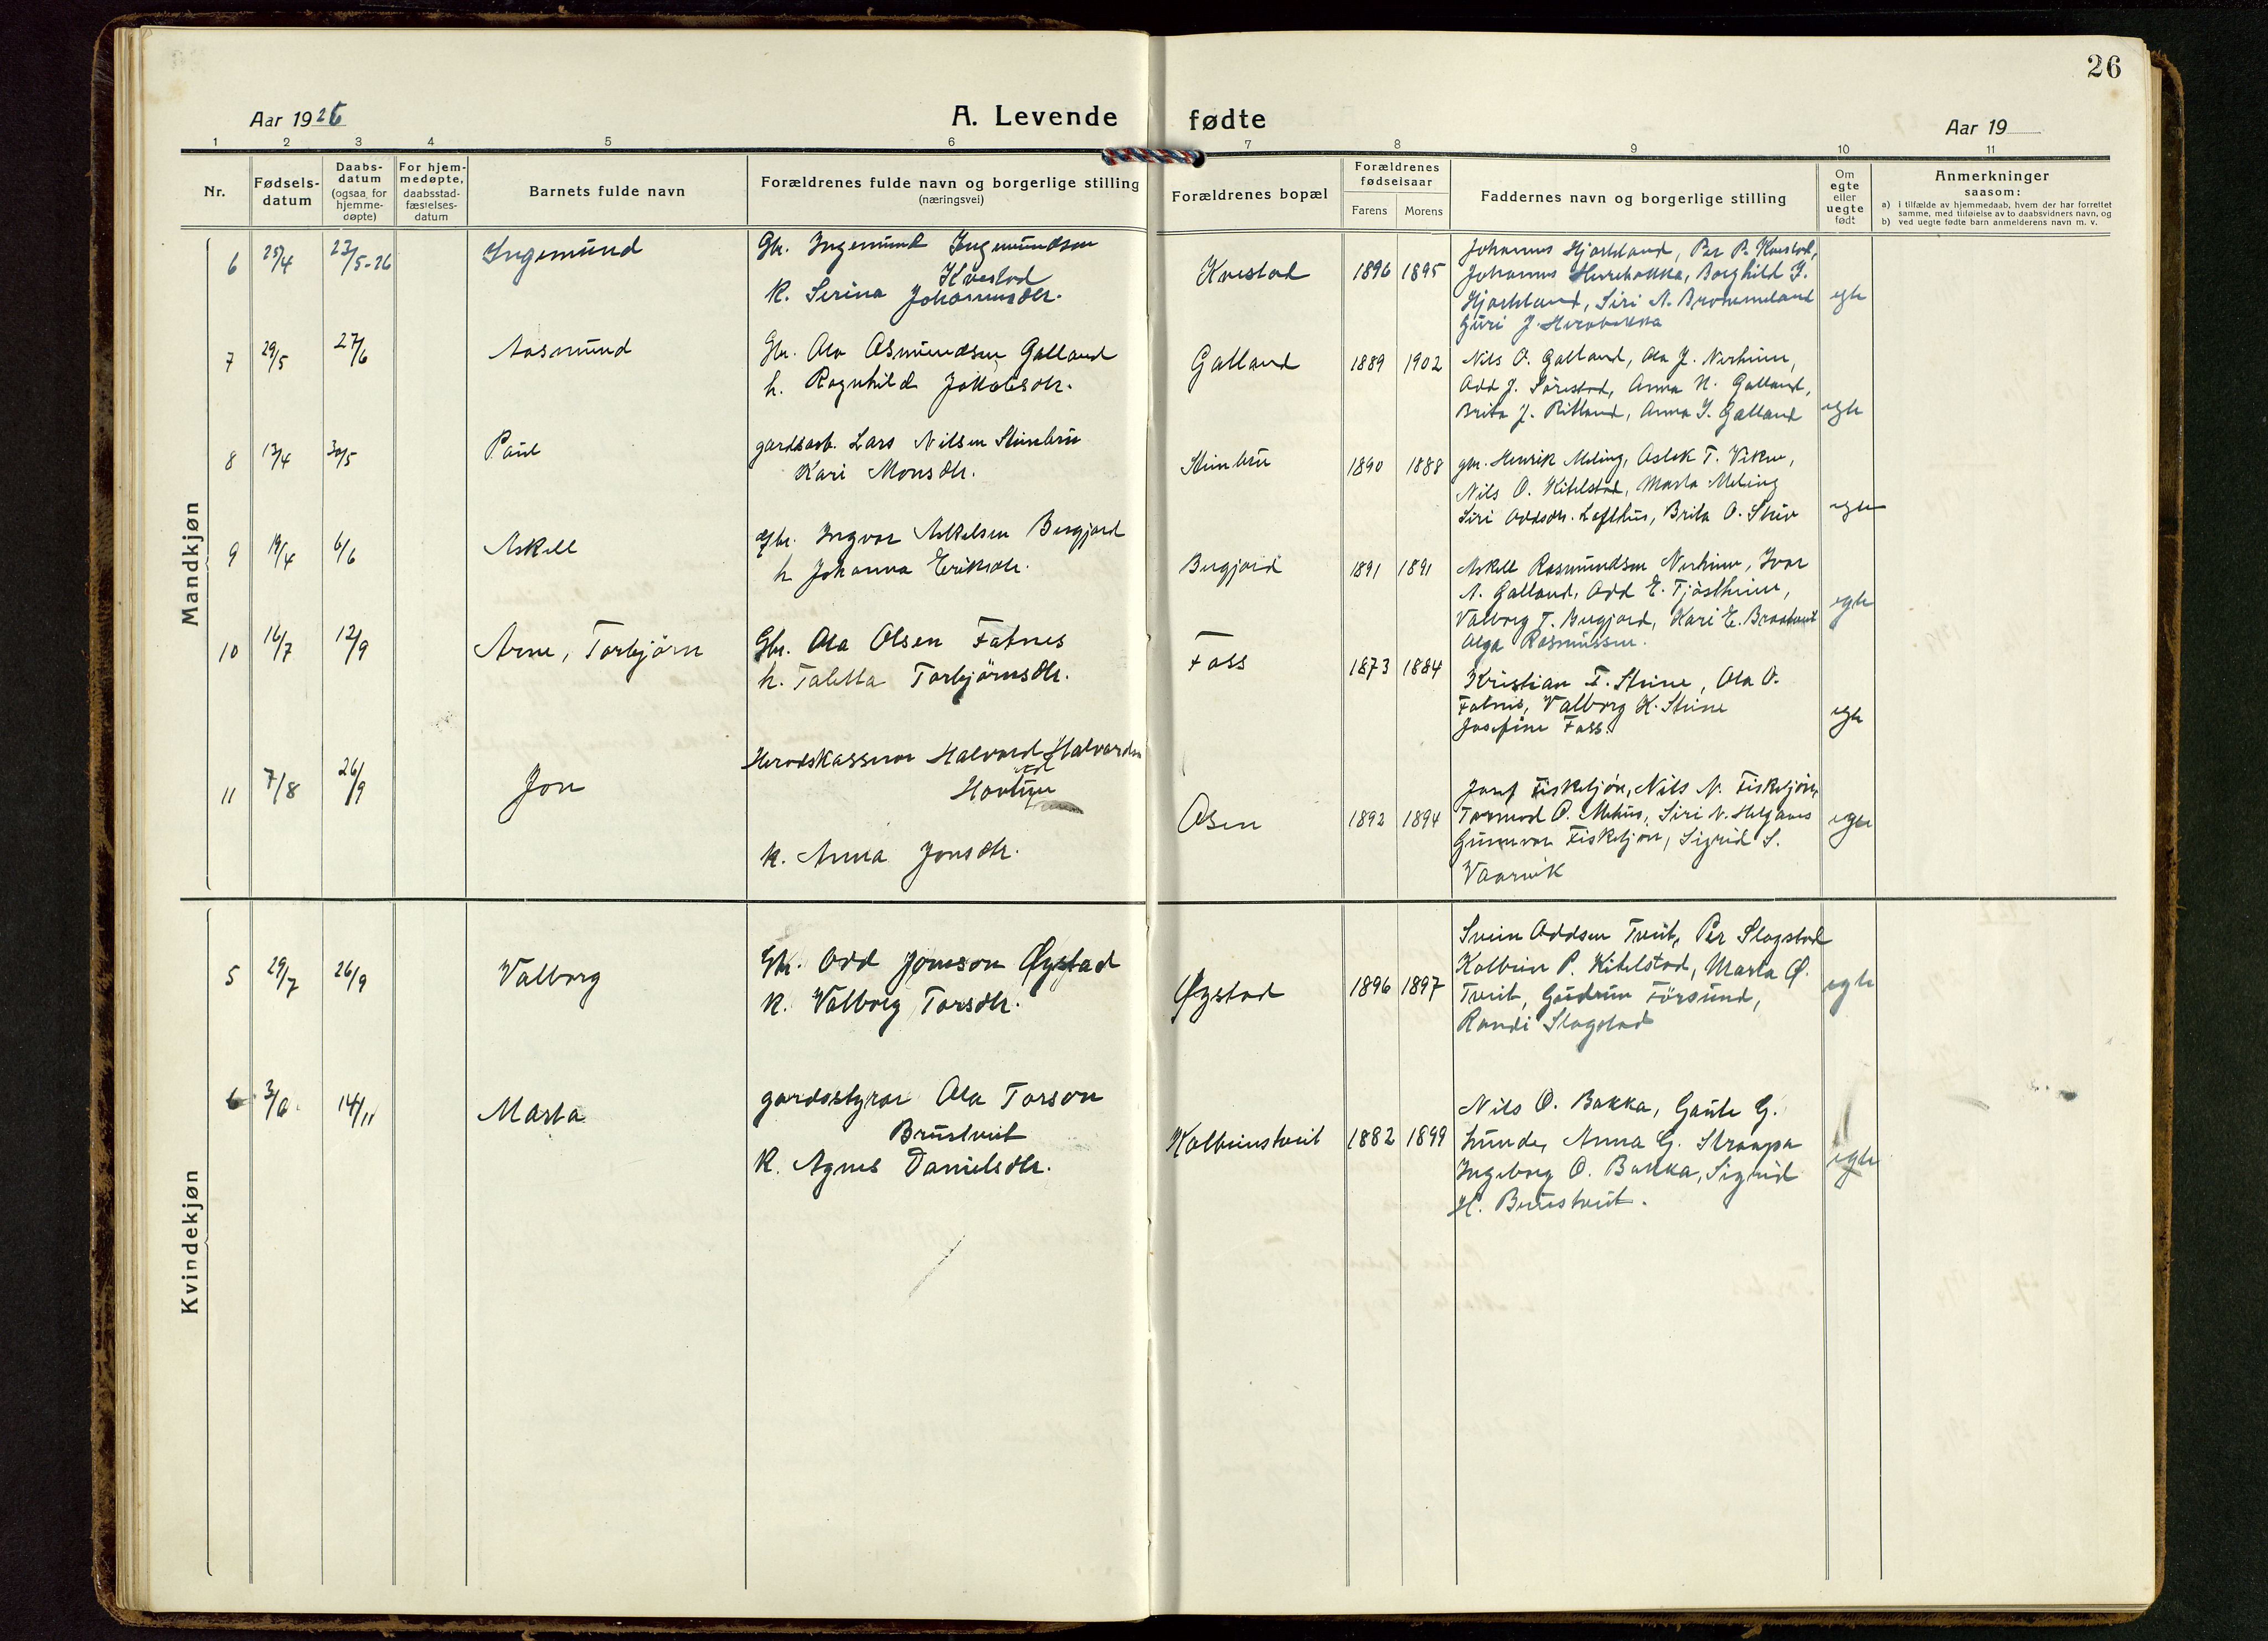 26
Aar 1926
A. Levende fødte
Aar 19
1 2 3 4 5 6 7 8 9 10 11
Nr.
Fødsels-
datum
Daabs-
datum
(ogsaa for
hjemme-
døpte)
For hjem-
medøpte,
daabsstad-
fæstelses-
datum
Barnets fulde navn
Forældrenes fulde navn og borgerlige stilling
(næringsvei)
Forældrenes bopæl
Forældrenes
fødselsaar
Farens Morens
Faddernes navn og borgerlige stilling
Om
egte
eller
uegte
født
Anmerkninger
saasom:
a) i tilfælde av hjemmedaab, hvem der har forrettet
samme, med tilføielse av to daabsvidners navn, og
b) ved uegte fødte barn anmelderens navn m. v.
Mandkjøn
6 25/4 23/5-26 Ingemund
Gbr. Ingemund Ingemundsen
Kvestad
k. Serina Johannesdtr.
Kvestad 1896 1895
Johannes Hjorteland, Per P. Kvestad,
Johannes Herrabakka, Borghild J.
Hjorteland, Siri N. Brommeland
Guri J. Herabakka
egte
7 29/5 27/6 Aasmund
Gbr. Ola Asmundsen Galland
h. Ragnhild Jakobsdtr.
Galland 1889 1902
Nils O. Galland, Ola J. Nerheim,
Odd J. Sörestad, Anna N. Galland,
Brita J. Ritland, Anna I. Galland
egte
8 13/4 30/5 Paul
gardsarb. Lars Nilsen Steinbru
Kari Monsdtr.
Steinbru 1890 1888
gbr. Henrik Meling, Aslak T. Vikse,
Nils O. Kitelstad, Marta Meling
Siri Oddsdtr. Lofthus, Brita O.
egte
9 19/4 6/6 Askell
Gbr. Ingvar Askelsen Bergjord
h. Johanna Eriksdtr.
Bergjord 1891 1891
Askell Rasmundsen Nerheim, Ivar
N. Galland, Odd E. Tjöstheim,
Valborg T. Bergjord, Kari E. Braatveit
Olga Rasmussen.
egte
10 16/7 12/9 Arne, Torbjörn
Gbr. Ola Olsen Fatnes
h. Taletta Torbjörnsdtr.
Foss 1873 1884
Kristian T. Steine, Ola O.
Fatnes, Valborg K. Steine
Josefine Foss.
egte
11 7/8 26/9 Jon
Heradskasserar Halvard Halvardsen
Hovtun
k. Anna Jonsdtr.
Osen 1892 1894
Josef Fisketjön, Nils N. Fisketjön,
Tormod O. Mehus, Siri N. Helganes
Gunvor Fisketjön, Sigrid S.
Vaarvik
egte
Kvindekjøn
5 29/7 26/9 Valborg
Gbr. Odd Jonson Øystad
k. Valborg Torsdtr.
Øystad 1896 1897
Svein Oddsen Tveit, Per Slogstad
Kolbein P. Kitelstad, Marta Ø.
Tveit, Gudrun Försund,
Randi Slogstad
egte
6 3/6 14/11 Marta
gardsstyrar Ola Torson
Brustveit
k. Agnes Danielsdtr.
Kolbeinstveit 1882 1899
Nils O. Bakka, Gaute G.
Lunde, Anna G. Straapa
Ingeborg O. Bakka, Sigrid
H. Brustveit.
egte